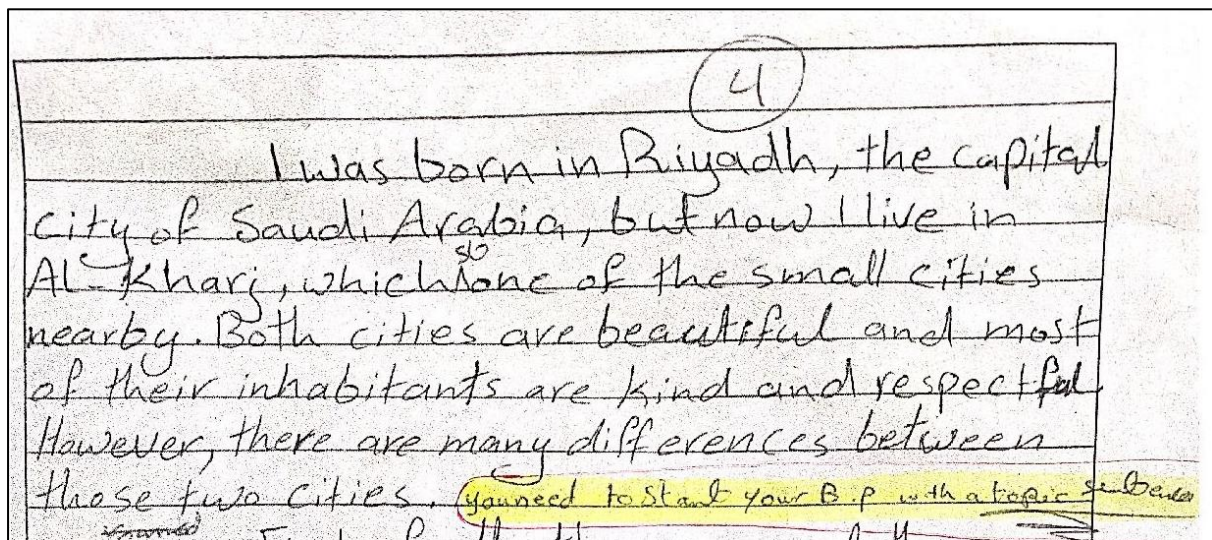 4
I was born in Riyadh, the capital
city of Saudi Arabia, but now I live in
is
Al-Kharj, which one of the small cities
nearby. Both cities are beautiful and most
of their inhabitants are kind and respectful
However, there are many differences between
those two cities. you need to start your B.P with a topic sentence